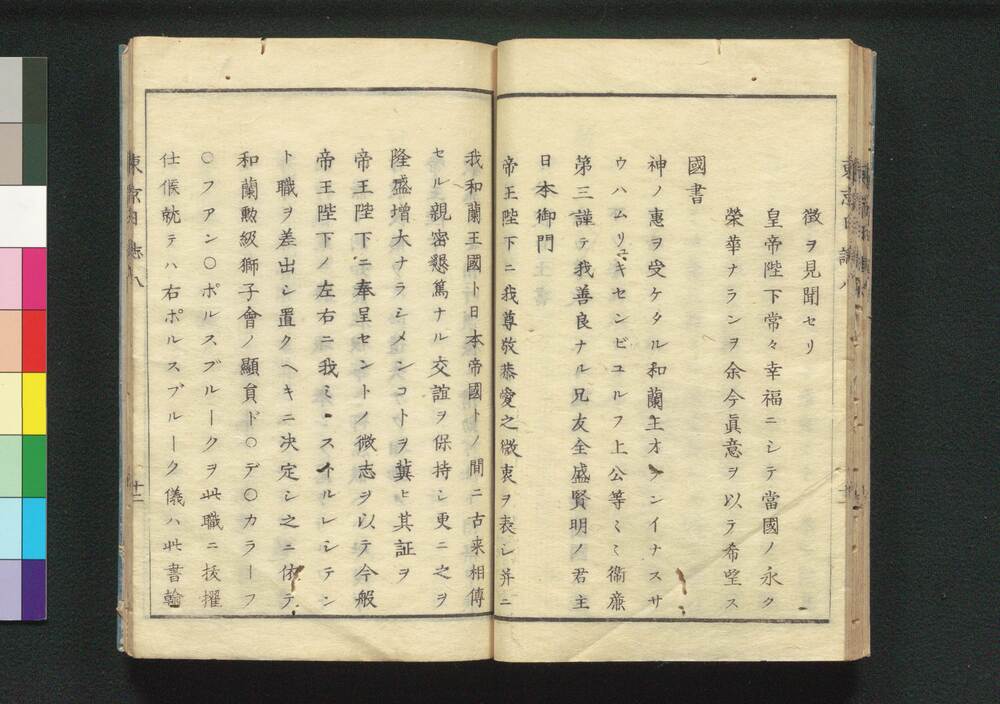 徴ヲ見聞セリ
皇帝陛下常々幸福ニシテ當國ノ永ク
榮華ナランヲ余今眞意ヲ以ラ希望ス
國書
神ノ惠ヲ受ケタル和蘭王オランイナスサ
ウハムリユキセンビュルフ上公等ミミ衞廉
第三謹テ我善良ナル兄友全盛賢明ノ君主
日本御門
帝王陛下ニ我尊敬恭愛之微衷ヲ表シ并ニ
我和蘭王國ト日本帝國トノ間ニ古来相傳
セル親密懇篤ナル交誼ヲ保持シ更ニ之ヲ
隆盛增大ナラシメンコトヲ冀ヒ其証ヲ
帝王陛下ニ奉呈セントノ微志ヲ以テ今般
帝王陛下ノ左右ニ我ミニスイルレシテン
ト職ヲ差出シ置クヘキニ决定シ之ニ依テ
和蘭勲級獅子會ノ顯貟ド○デ○カラーフ
○フアン○ポルスブルークヲ此職ニ拔擢
仕候就テハ右ポルスブルーク儀ハ此書翰
東京日誌八
十二